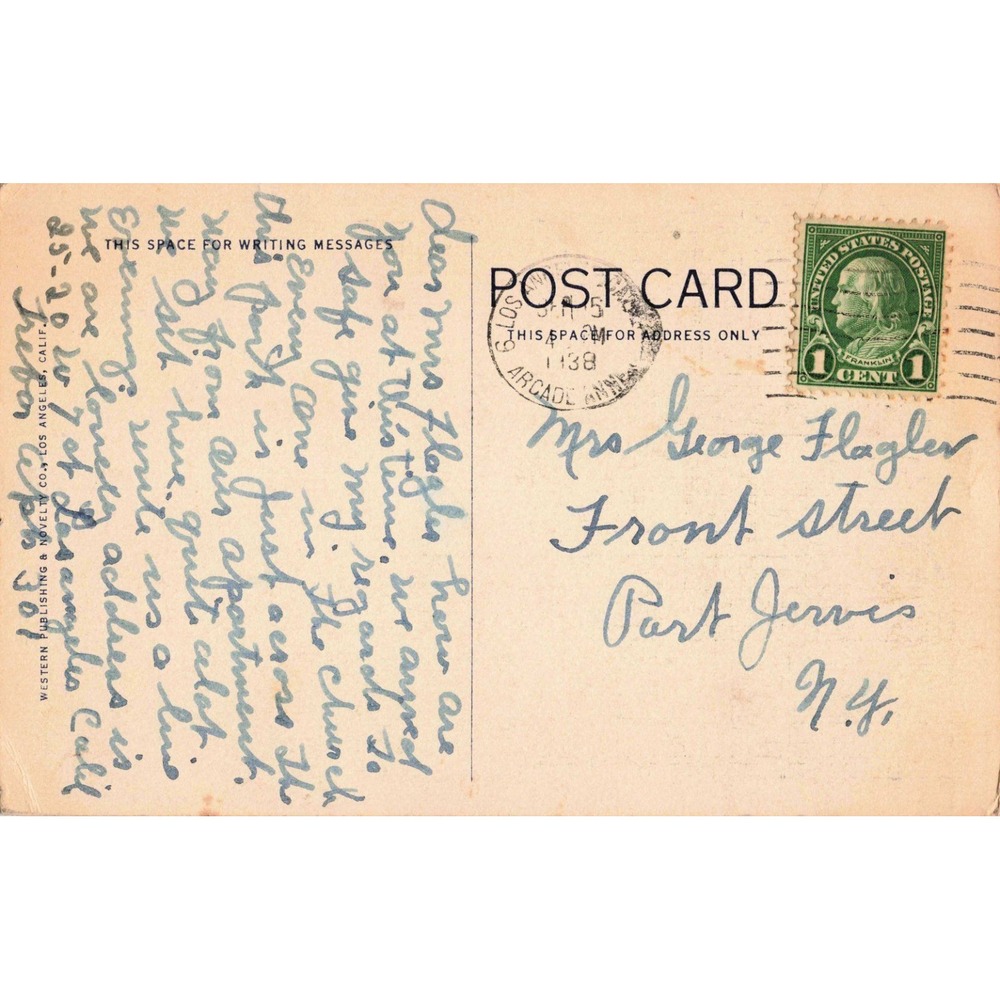 THIS SPACE FOR WRITING MESSAGES
POST CARD
THIS SPACE FOR ADDRESS ONLY
UNITED STATES POSTAGE
FRANKLIN
1 CENT 1
LOS
5
1938
ARCADE ANNEX
Dear Mrs Flagler how are
you at this time, we arrived
safe give my regards to
Every one in the church
this park is just across the
way from our apartment
we sit there quite alot
Evenings write us a line
lonely address is
we are
25-20 W 7 st Los angeles Calif
apts 309
Mrs George Flagler
Front street
Port Jervis
N.Y.
WESTERN PUBLISHING & NOVELTY CO., LOS ANGELES, CALIF.